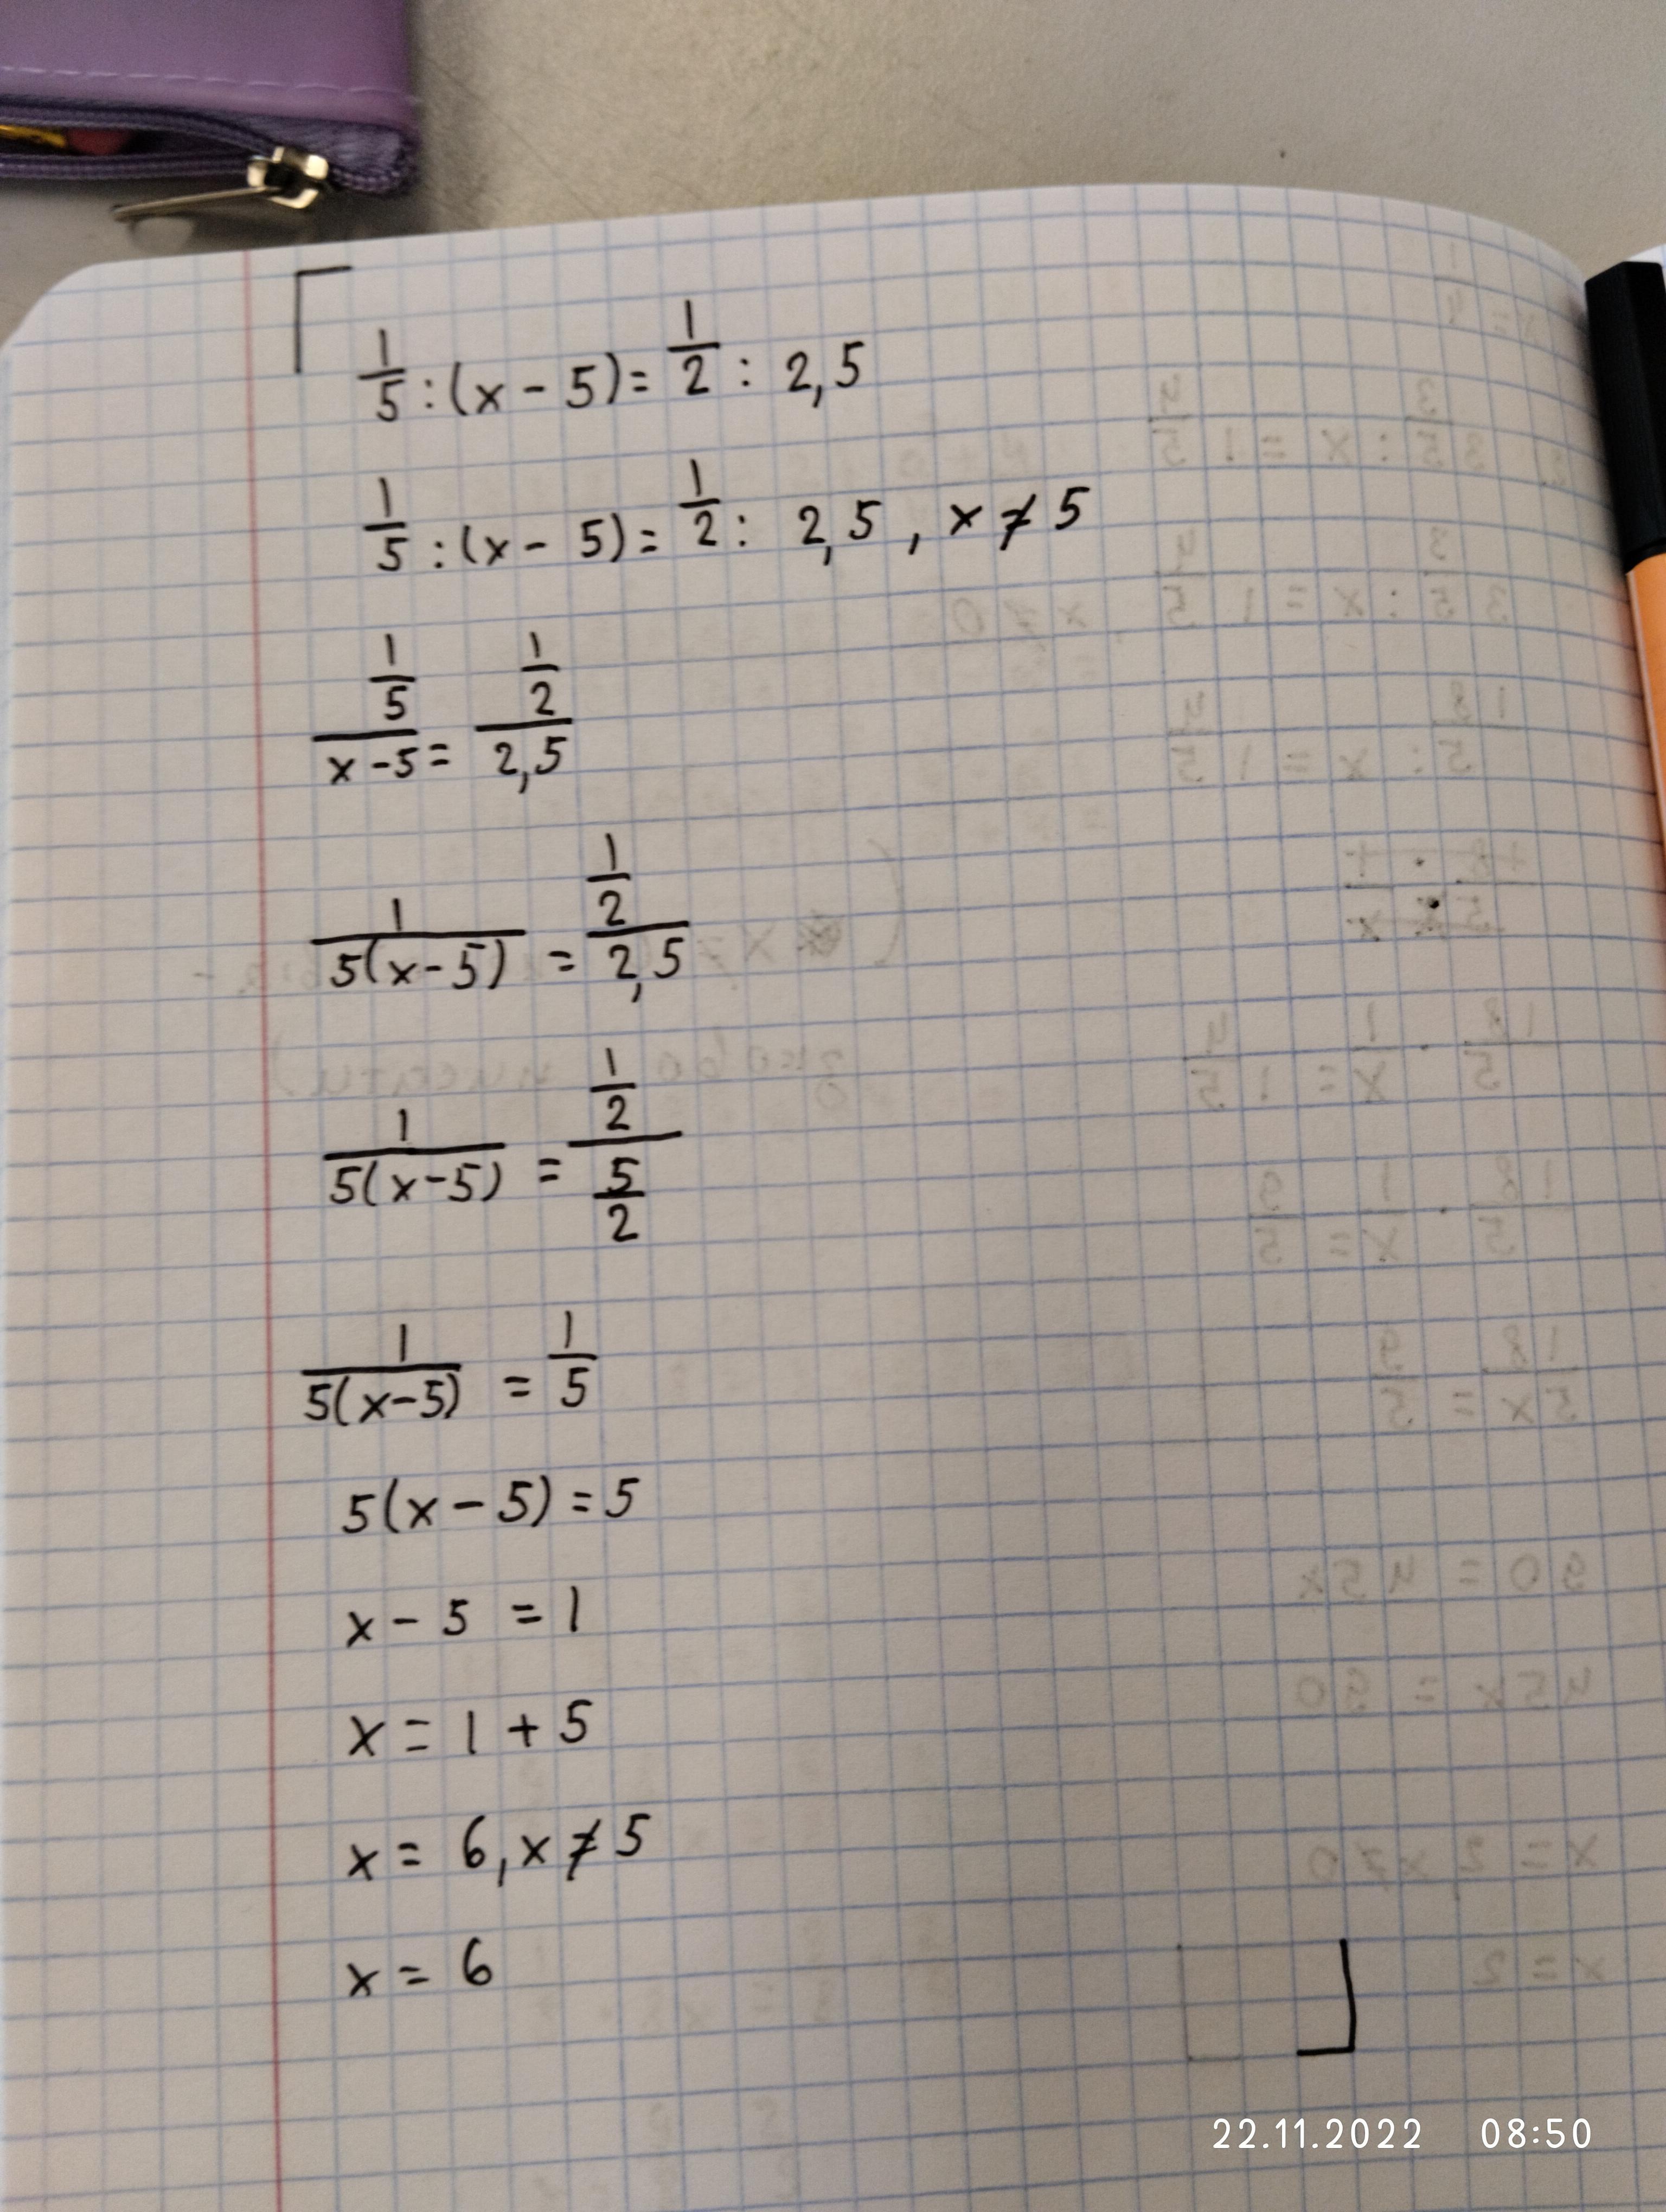 1/5 : (x - 5) = 1/2 : 2,5
1/5 : (x - 5) = 1/2 : 2,5 , x ≠ 5
(1/5)/(x - 5) = (1/2)/(2,5)
1/(5(x - 5)) = (1/2)/(2,5)
1/(5(x - 5)) = (1/2)/(5/2)
1/(5(x - 5)) = 1/5
5(x - 5) = 5
x - 5 = 1
x = 1 + 5
x = 6, x ≠ 5
x = 6
22.11.2022 08:50